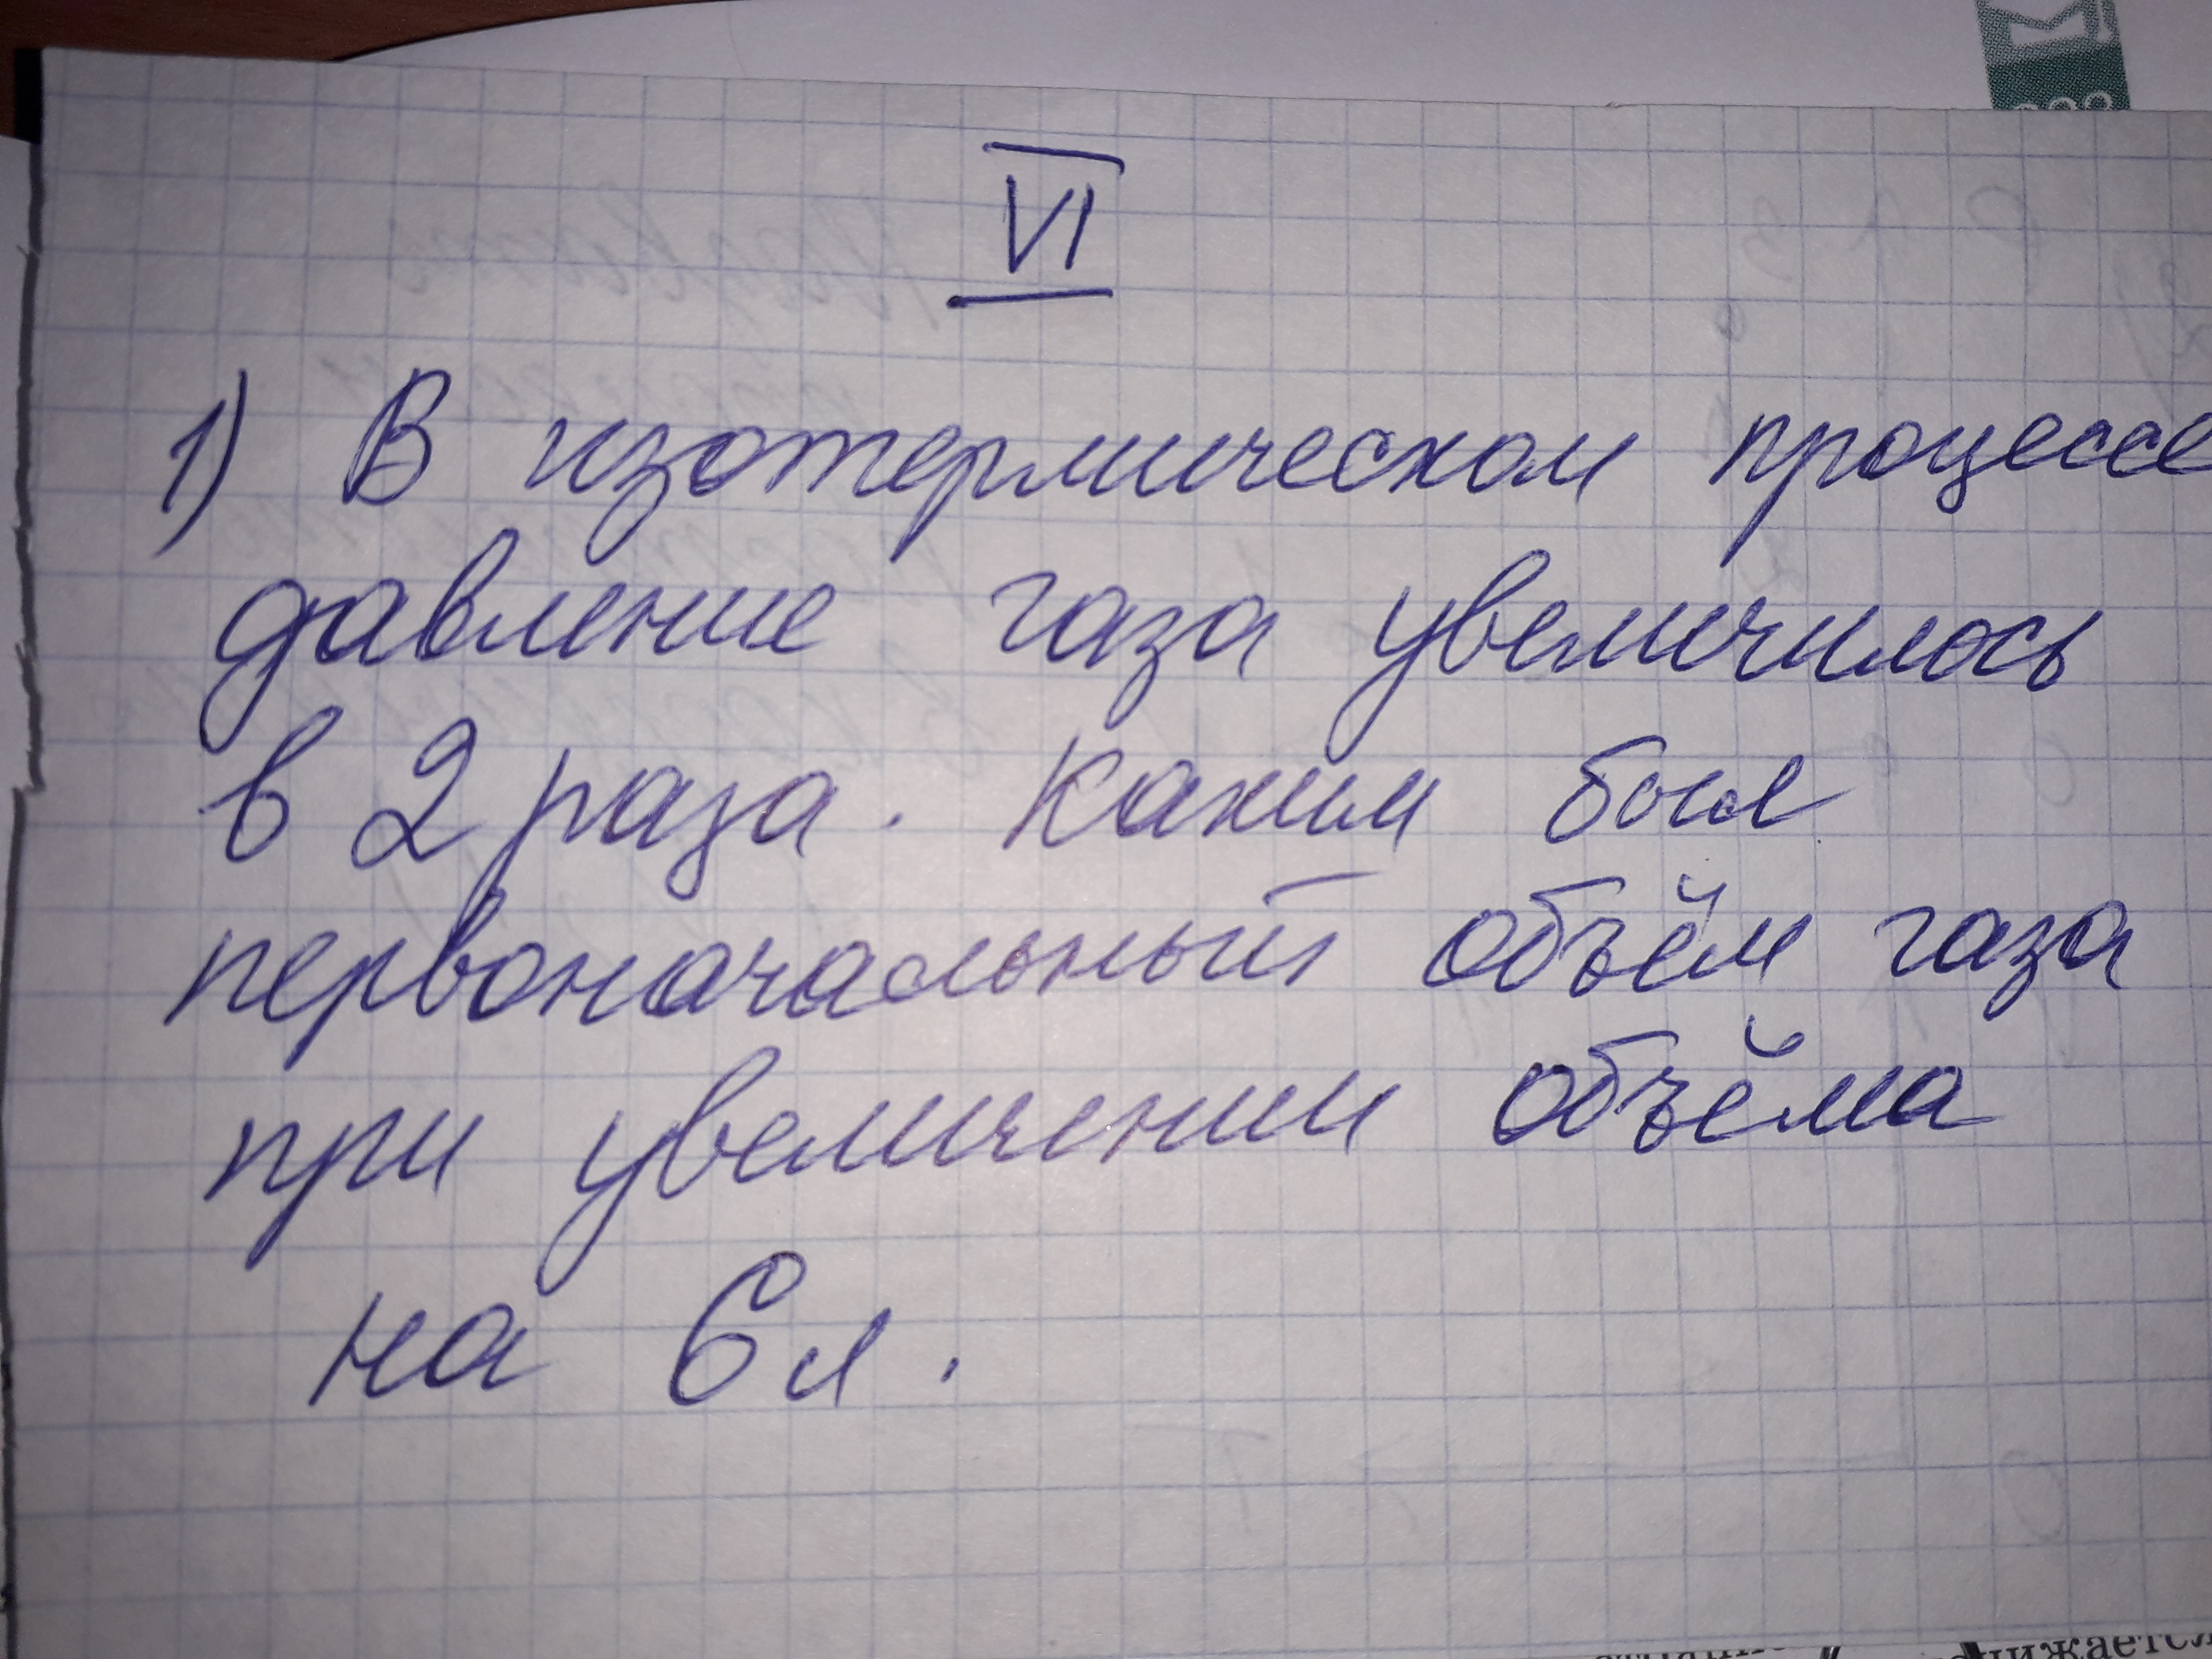 VI
1) В изотермическом процессе
давление газа увеличилось
в 2 раза. Каким был
первоначальный объём газа
при увеличении объёма
на 6 л.